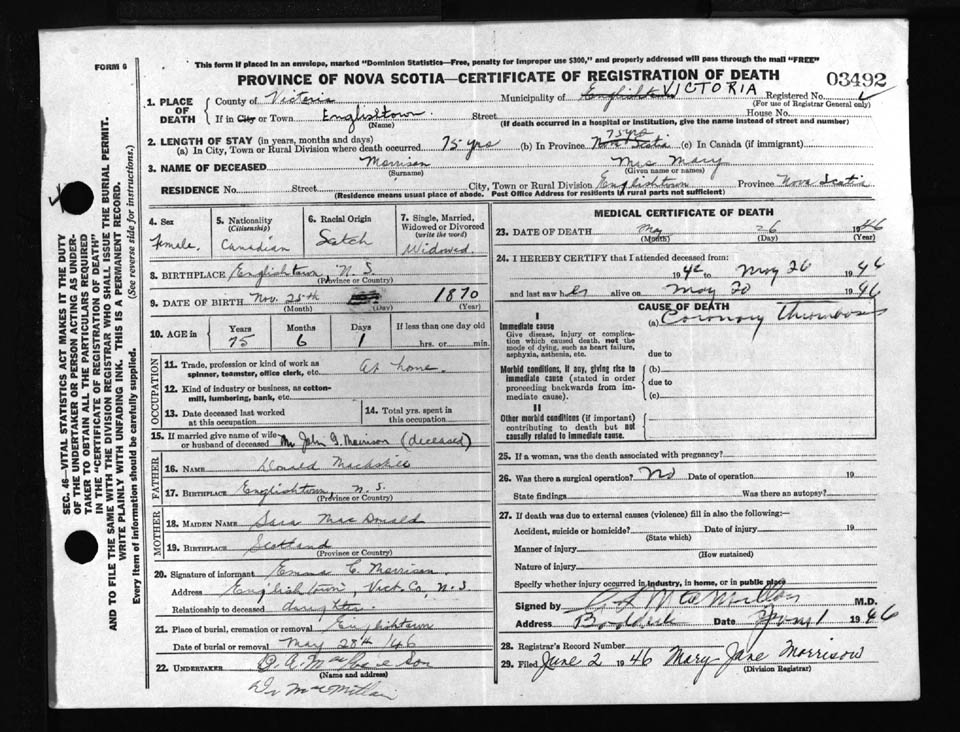 FORM 6
This form if placed in an envelope, marked "Dominion Statistics—Free, penalty for improper use $300," and properly addressed will pass through the mail "FREE"
PROVINCE OF NOVA SCOTIA—CERTIFICATE OF REGISTRATION OF DEATH
03492
1. PLACE OF DEATH
County of Victoria Municipality of VICTORIA Registered No.
(For use of Registrar General only)
If in City or Town Englishtown. Street House No.
(Name) (If death occurred in a hospital or institution, give the name instead of street and number)
2. LENGTH OF STAY (in years, months and days)
(a) In City, Town or Rural Division where death occurred 75 yrs (b) In Province 75 yrs Nova Scotia (c) In Canada (if immigrant)
3. NAME OF DECEASED Morrison Mrs Mary
(Surname) (Given name or names)
RESIDENCE No. Street City, Town or Rural Division Englishtown Province Nova Scotia
(Residence means usual place of abode. Post Office Address for residents in rural parts not sufficient)
4. Sex
Female.
5. Nationality
(Citizenship)
Canadian
6. Racial Origin
Scotch
7. Single, Married, Widowed or Divorced
(write the word)
Widowed.
8. BIRTHPLACE Englishtown, N.S.
(Province or Country)
9. DATE OF BIRTH Nov. 25th 1870
(Month) (Day) (Year)
10. AGE in Years Months Days If less than one day old
75 6 1 hrs. or min.
OCCUPATION
11. Trade, profession or kind of work as spinner, teamster, office clerk, etc. At home.
12. Kind of industry or business, as cotton-mill, lumbering, bank, etc.
13. Date deceased last worked at this occupation
14. Total yrs. spent in this occupation
15. If married give name of wife or husband of deceased Mr John G. Morrison (deceased)
FATHER
16. NAME Donald
17. BIRTHPLACE Englishtown, N.S.
(Province or Country)
MOTHER
18. MAIDEN NAME Sara MacDonald
19. BIRTHPLACE Scotland
(Province or Country)
20. Signature of informant Emma C. Morrison.
Address Englishtown, Vict. Co, N.S
Relationship to deceased daughter.
21. Place of burial, cremation or removal Englishtown
Date of burial or removal May 28th /46
22. UNDERTAKER Son
(Name and address)
Dr MacMillan
MEDICAL CERTIFICATE OF DEATH
23. DATE OF DEATH May 26 1946
(Month) (Day) (Year)
24. I HEREBY CERTIFY that I attended deceased from:
1942 to May 26 1946
and last saw her alive on May 20 1946
CAUSE OF DEATH
I
Immediate cause
Give disease, injury or complication which caused death, not the mode of dying, such as heart failure, asphyxia, asthenia, etc.
(a) Coronary Thrombosis
due to
Morbid conditions, if any, giving rise to immediate cause (stated in order proceeding backwards from immediate cause).
(b)
due to
(c)
II
Other morbid conditions (if important) contributing to death but not causally related to immediate cause.
25. If a woman, was the death associated with pregnancy?
26. Was there a surgical operation? No Date of operation 19
State findings Was there an autopsy?
27. If death was due to external causes (violence) fill in also the following:—
Accident, suicide or homicide? Date of injury 19
(State which)
Manner of injury
(How sustained)
Nature of injury
Specify whether injury occurred in industry, in home, or in public place
Signed by MacMillan M.D.
Address Baddeck Date 1 1946
28. Registrar's Record Number
29. Filed June 2 1946 Mary Jane Morrison
(Division Registrar)
SEC. 46—VITAL STATISTICS ACT MAKES IT THE DUTY
OF THE UNDERTAKER OR PERSON ACTING AS UNDER-
TAKER TO OBTAIN ALL THE PARTICULARS REQUIRED
IN THE "CERTIFICATE OF REGISTRATION OF DEATH"
AND TO FILE THE SAME WITH THE DIVISION REGISTRAR WHO SHALL ISSUE THE BURIAL PERMIT.
WRITE PLAINLY WITH UNFADING INK. THIS IS A PERMANENT RECORD.
Every item of information should be carefully supplied. (See reverse side for instructions.)